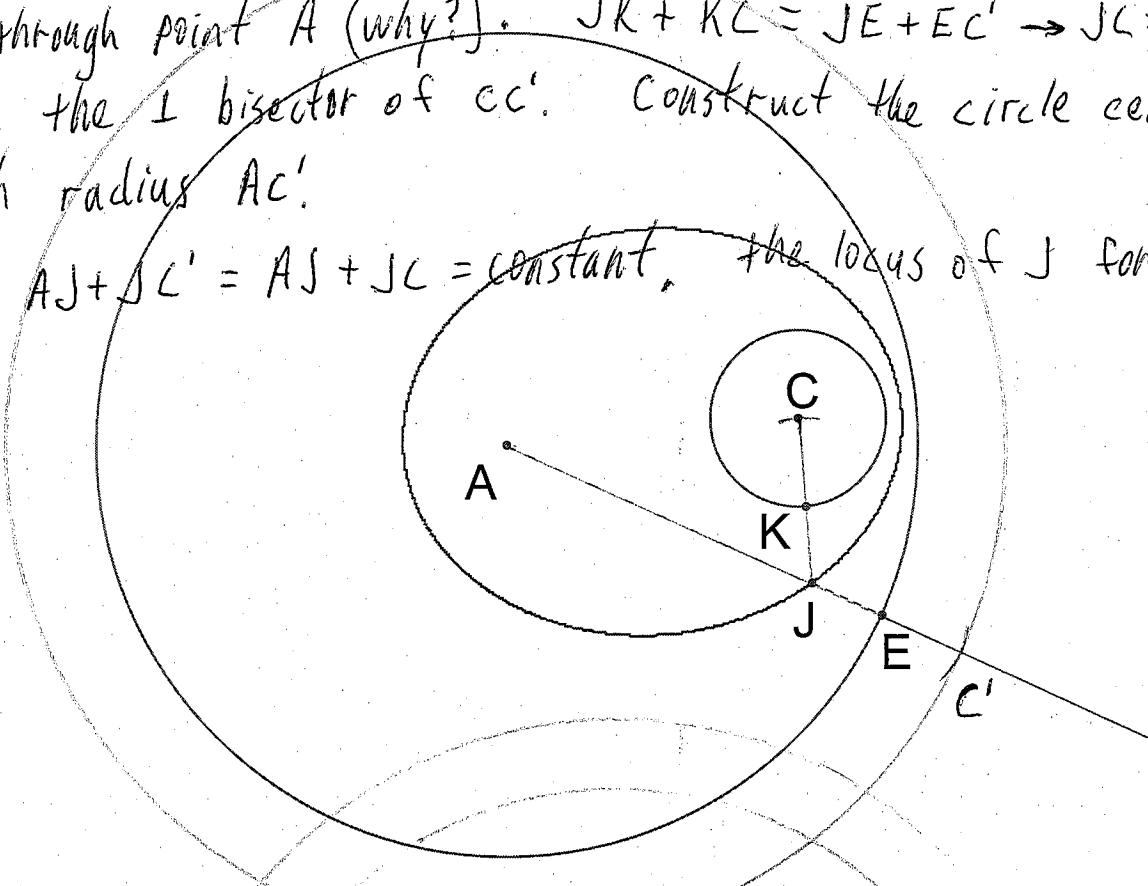 through point A (why?). JK + KC = JE + EC' → JC
the ⊥ bisector of CC'. Construct the circle ce
radius AC'.
AJ + JC' = AJ + JC = constant. the locus of J for
C
A
K
J
E
C'